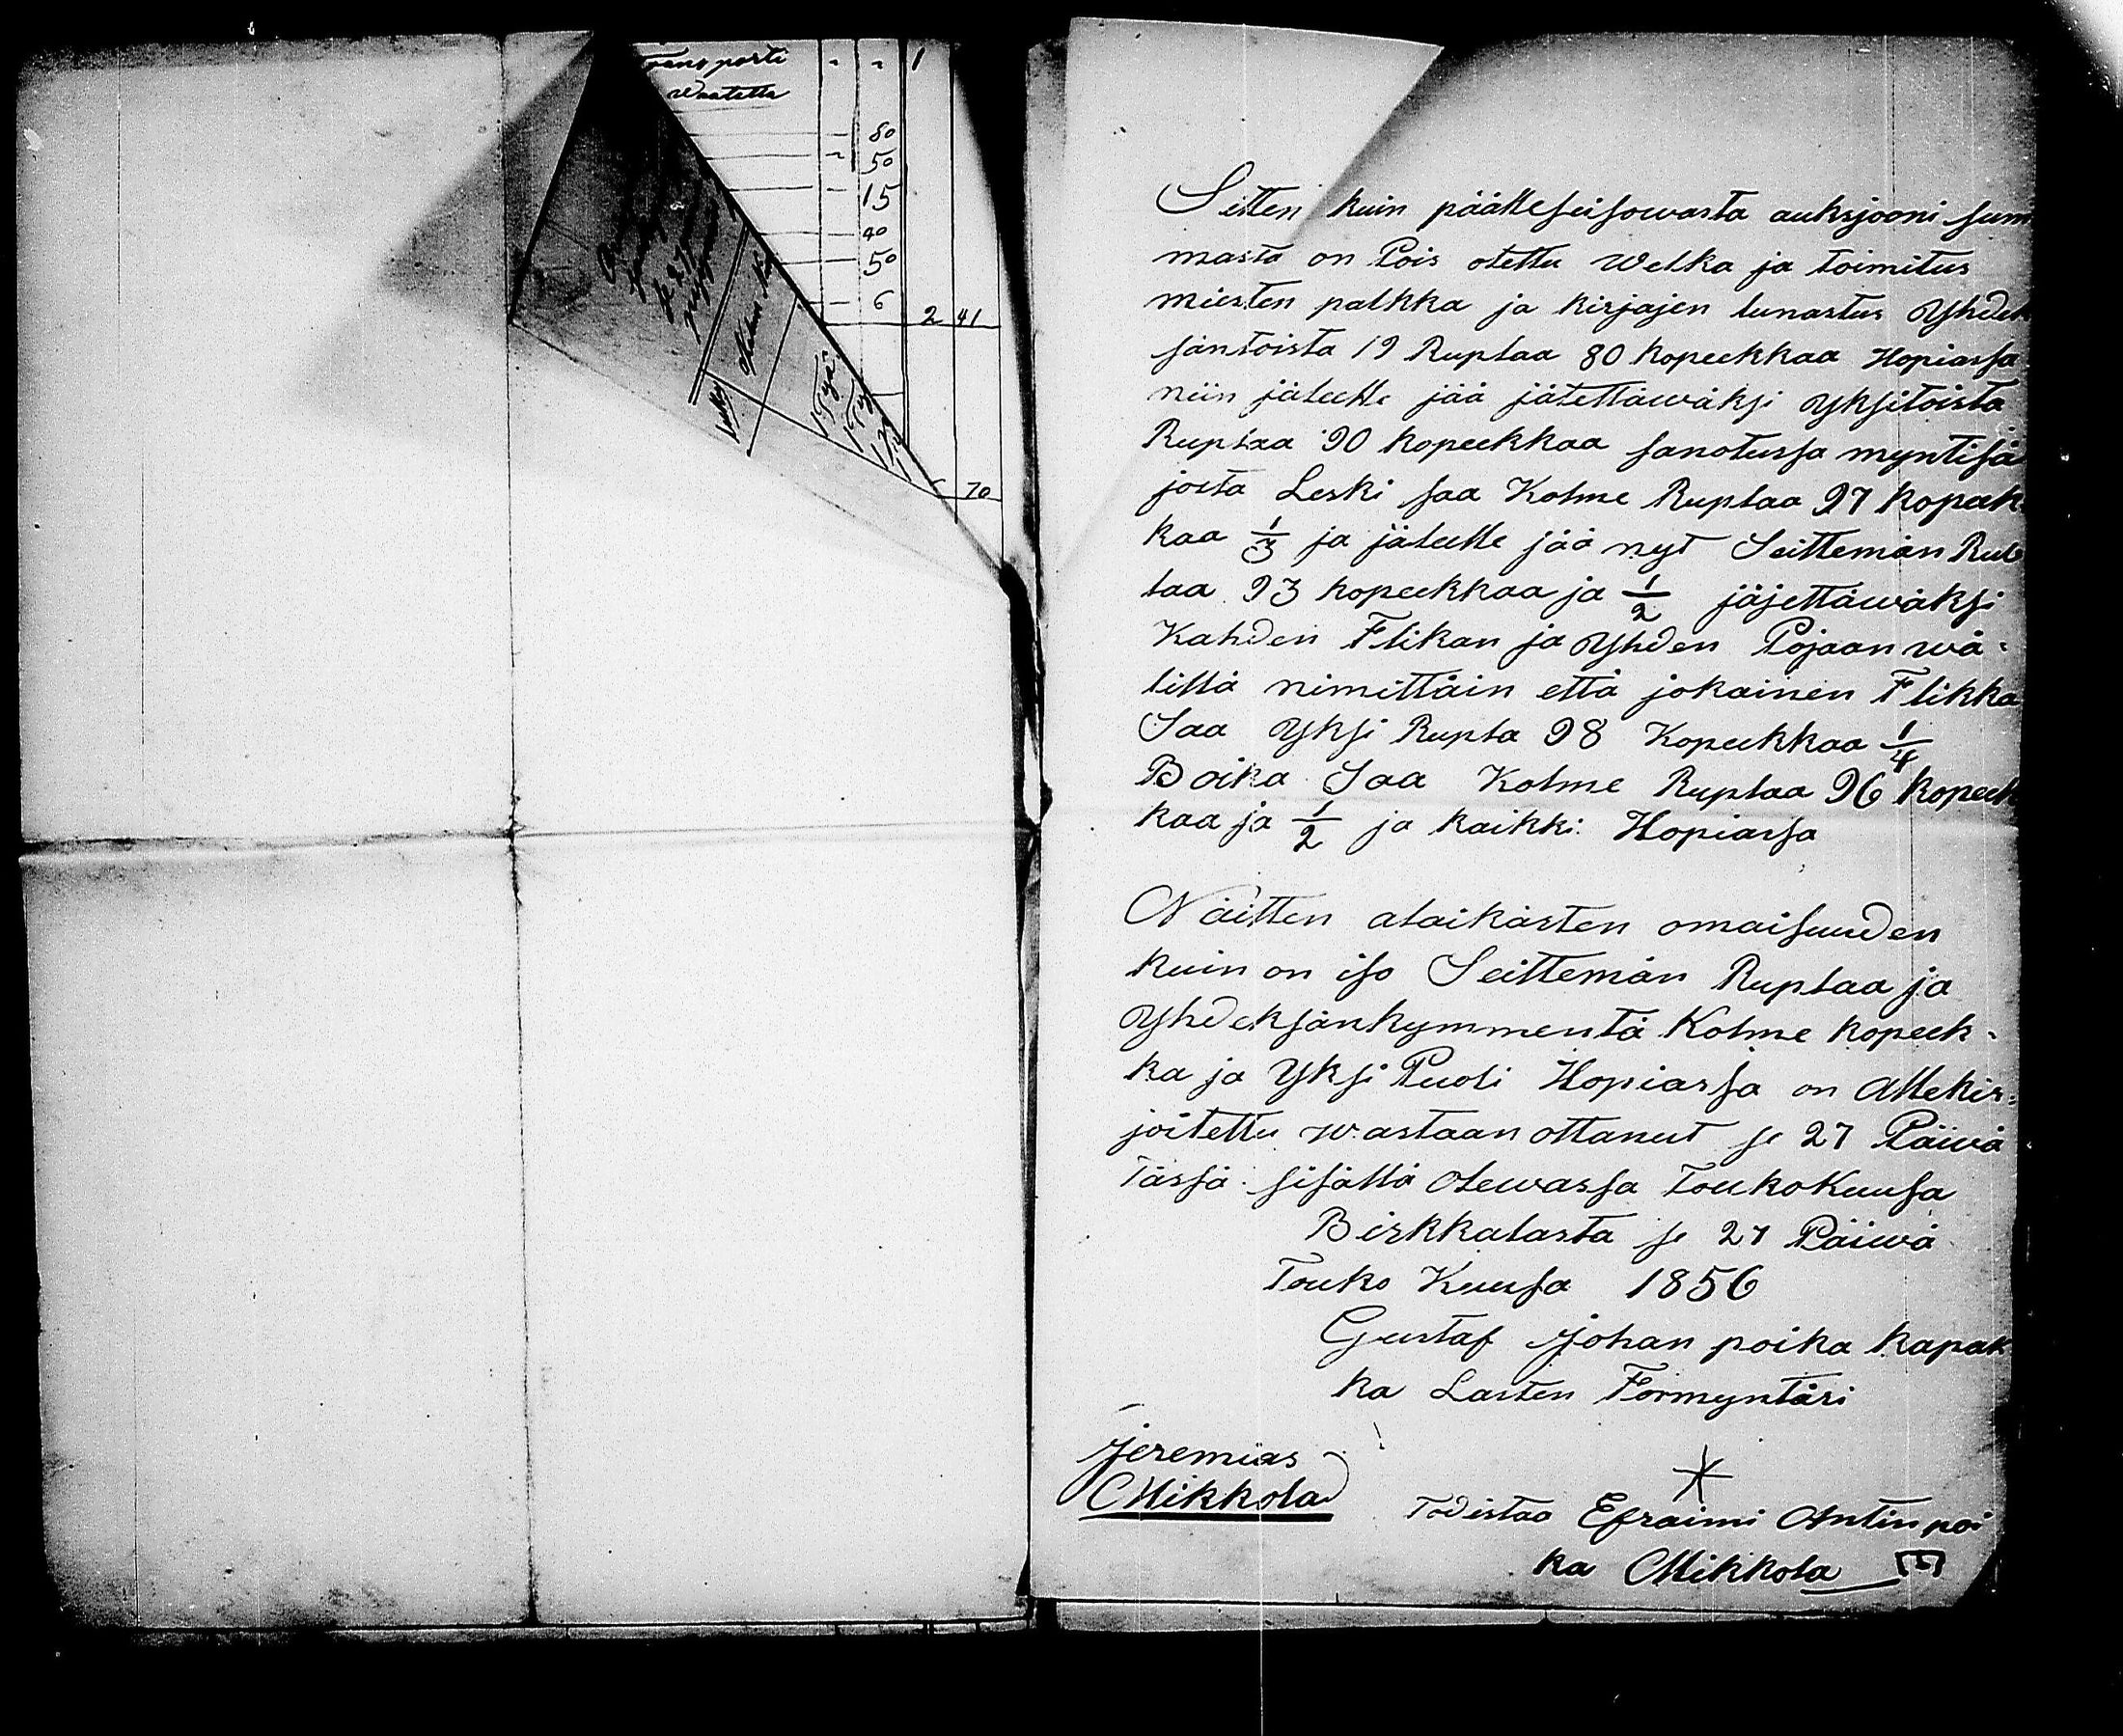 Transporti - - 1
Waatetta
80
- 50
- 15
- 40
- 50
- 6 2 41
70
Sitten kuin päälleseisowasta auksjooni sum
masta on Pois otettu Welka ja toimitus
miesten palkka ja kirjajen lunastus Yhdek
säntoista 19 Ruplaa 80 kopeekkaa Hopiassa
niin jäleelle jää jätettäwäksi Yksitoista
Ruplaa 90 kopeekkaa sanotussa myntisä
josta Leski saa Kolme Ruplaa 97 kopeek
kaa 1/3 ja jäleelle jää nyt Seittemän Rub
laa 93 kopeekkaa ja 1/2 jäjettäwäksi
Kahden Flikan ja Yhden Pojaan wä-
lillä nimittäin että jokainen Flikka
Saa Yksi Rupla 98 Kopeekkaa 1/4
Boika Saa Kolme Ruplaa 96 kopeek
kaa ja 1/2 ja kaikki Hopiassa
Näitten alaikästen omaisuuden
kuin on iso Seittemän Ruplaa ja
Yhdeksänkymmentä Kolme kopeek-
ka ja Yksi Puoli Hopiassa on Allekir-
joitettu wastaan ottanut se 27 Päiwä
tässä sisällä olewassa ToukoKuusa
Birkkalasta se 27 Päiwä
Touko Kuusa 1856
Gustaf Johan poika kapak
ka Lasten Formyntäri
Jeremias
Mikkola
Todistaa Efraimi Antin poi
ka Mikkola